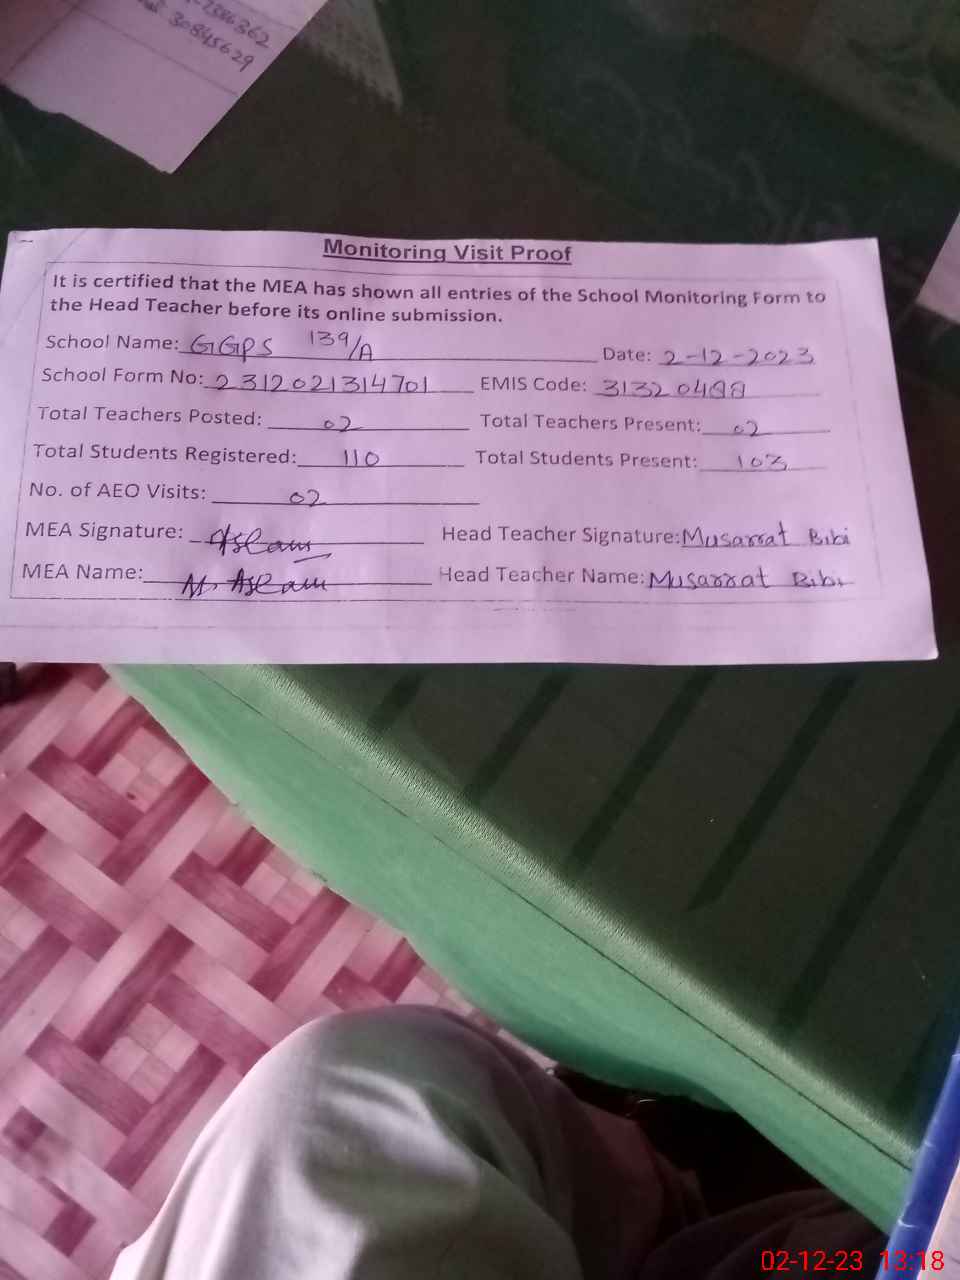 2386362
30845629
Monitoring Visit Proof
It is certified that the MEA has shown all entries of the School Monitoring Form to
the Head Teacher before its online submission.
School Name: GGPS 139/A Date: 2-12-2023
School Form No: 2312021314701 EMIS Code: 31320488
Total Teachers Posted: 02 Total Teachers Present: 02
Total Students Registered: 110 Total Students Present: 103
No. of AEO Visits: 02
MEA Signature: Aslam Head Teacher Signature: Musarrat Bibi
MEA Name: M. Aslam Head Teacher Name: Musarrat Bibi
02-12-23 13:18